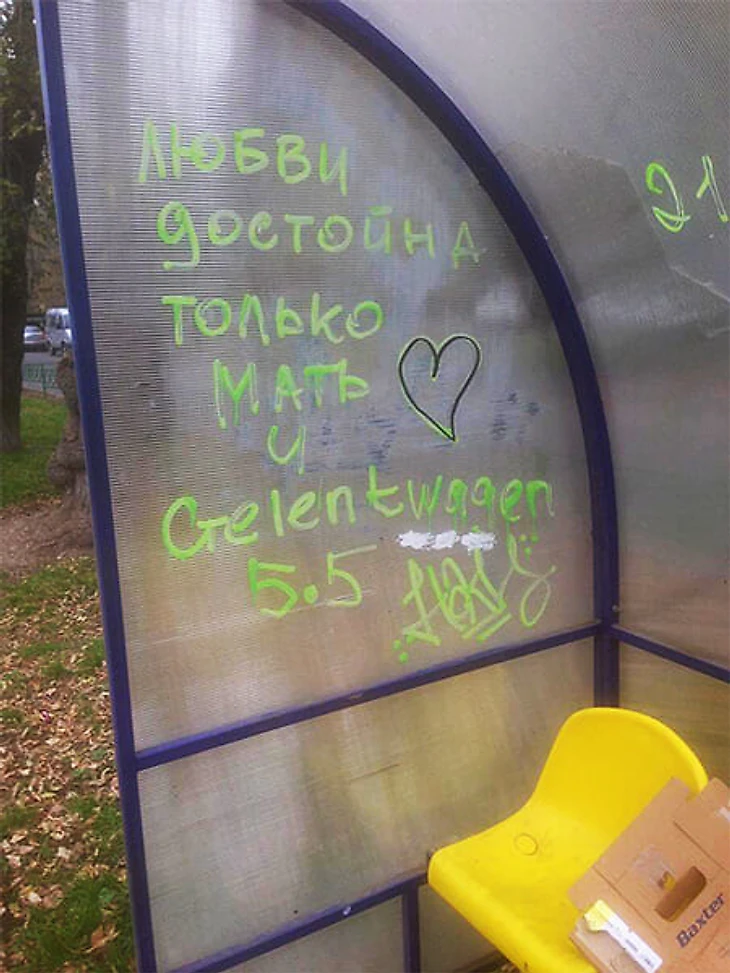 ЛЮБВИ
достойна
только
мать
и
Gelentwagen
5.5
21
Baxter